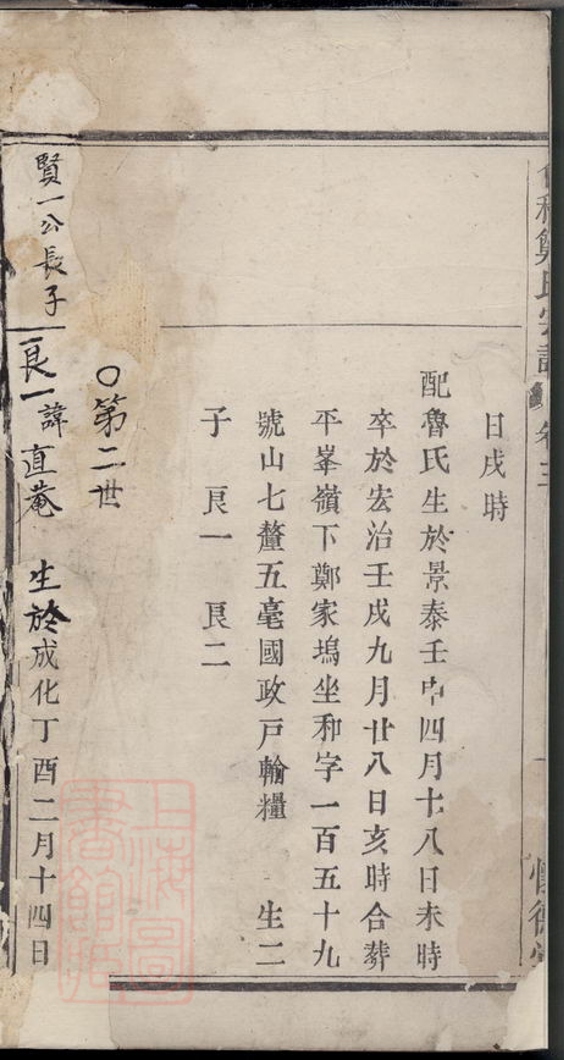 鄭氏宗譜 卷三
日戌時
配魯氏生於景泰壬申四月十八日未時
卒於宏治壬戌九月廿八日亥時合葬
平峯嶺下鄭家塢坐和字一百五十九
號山七釐五毫國政戶輸糧 生二
子 良一 良二
○第二世
賢一公長子
良一諱直菴 生於成化丁酉二月十四日
上海圖書館藏